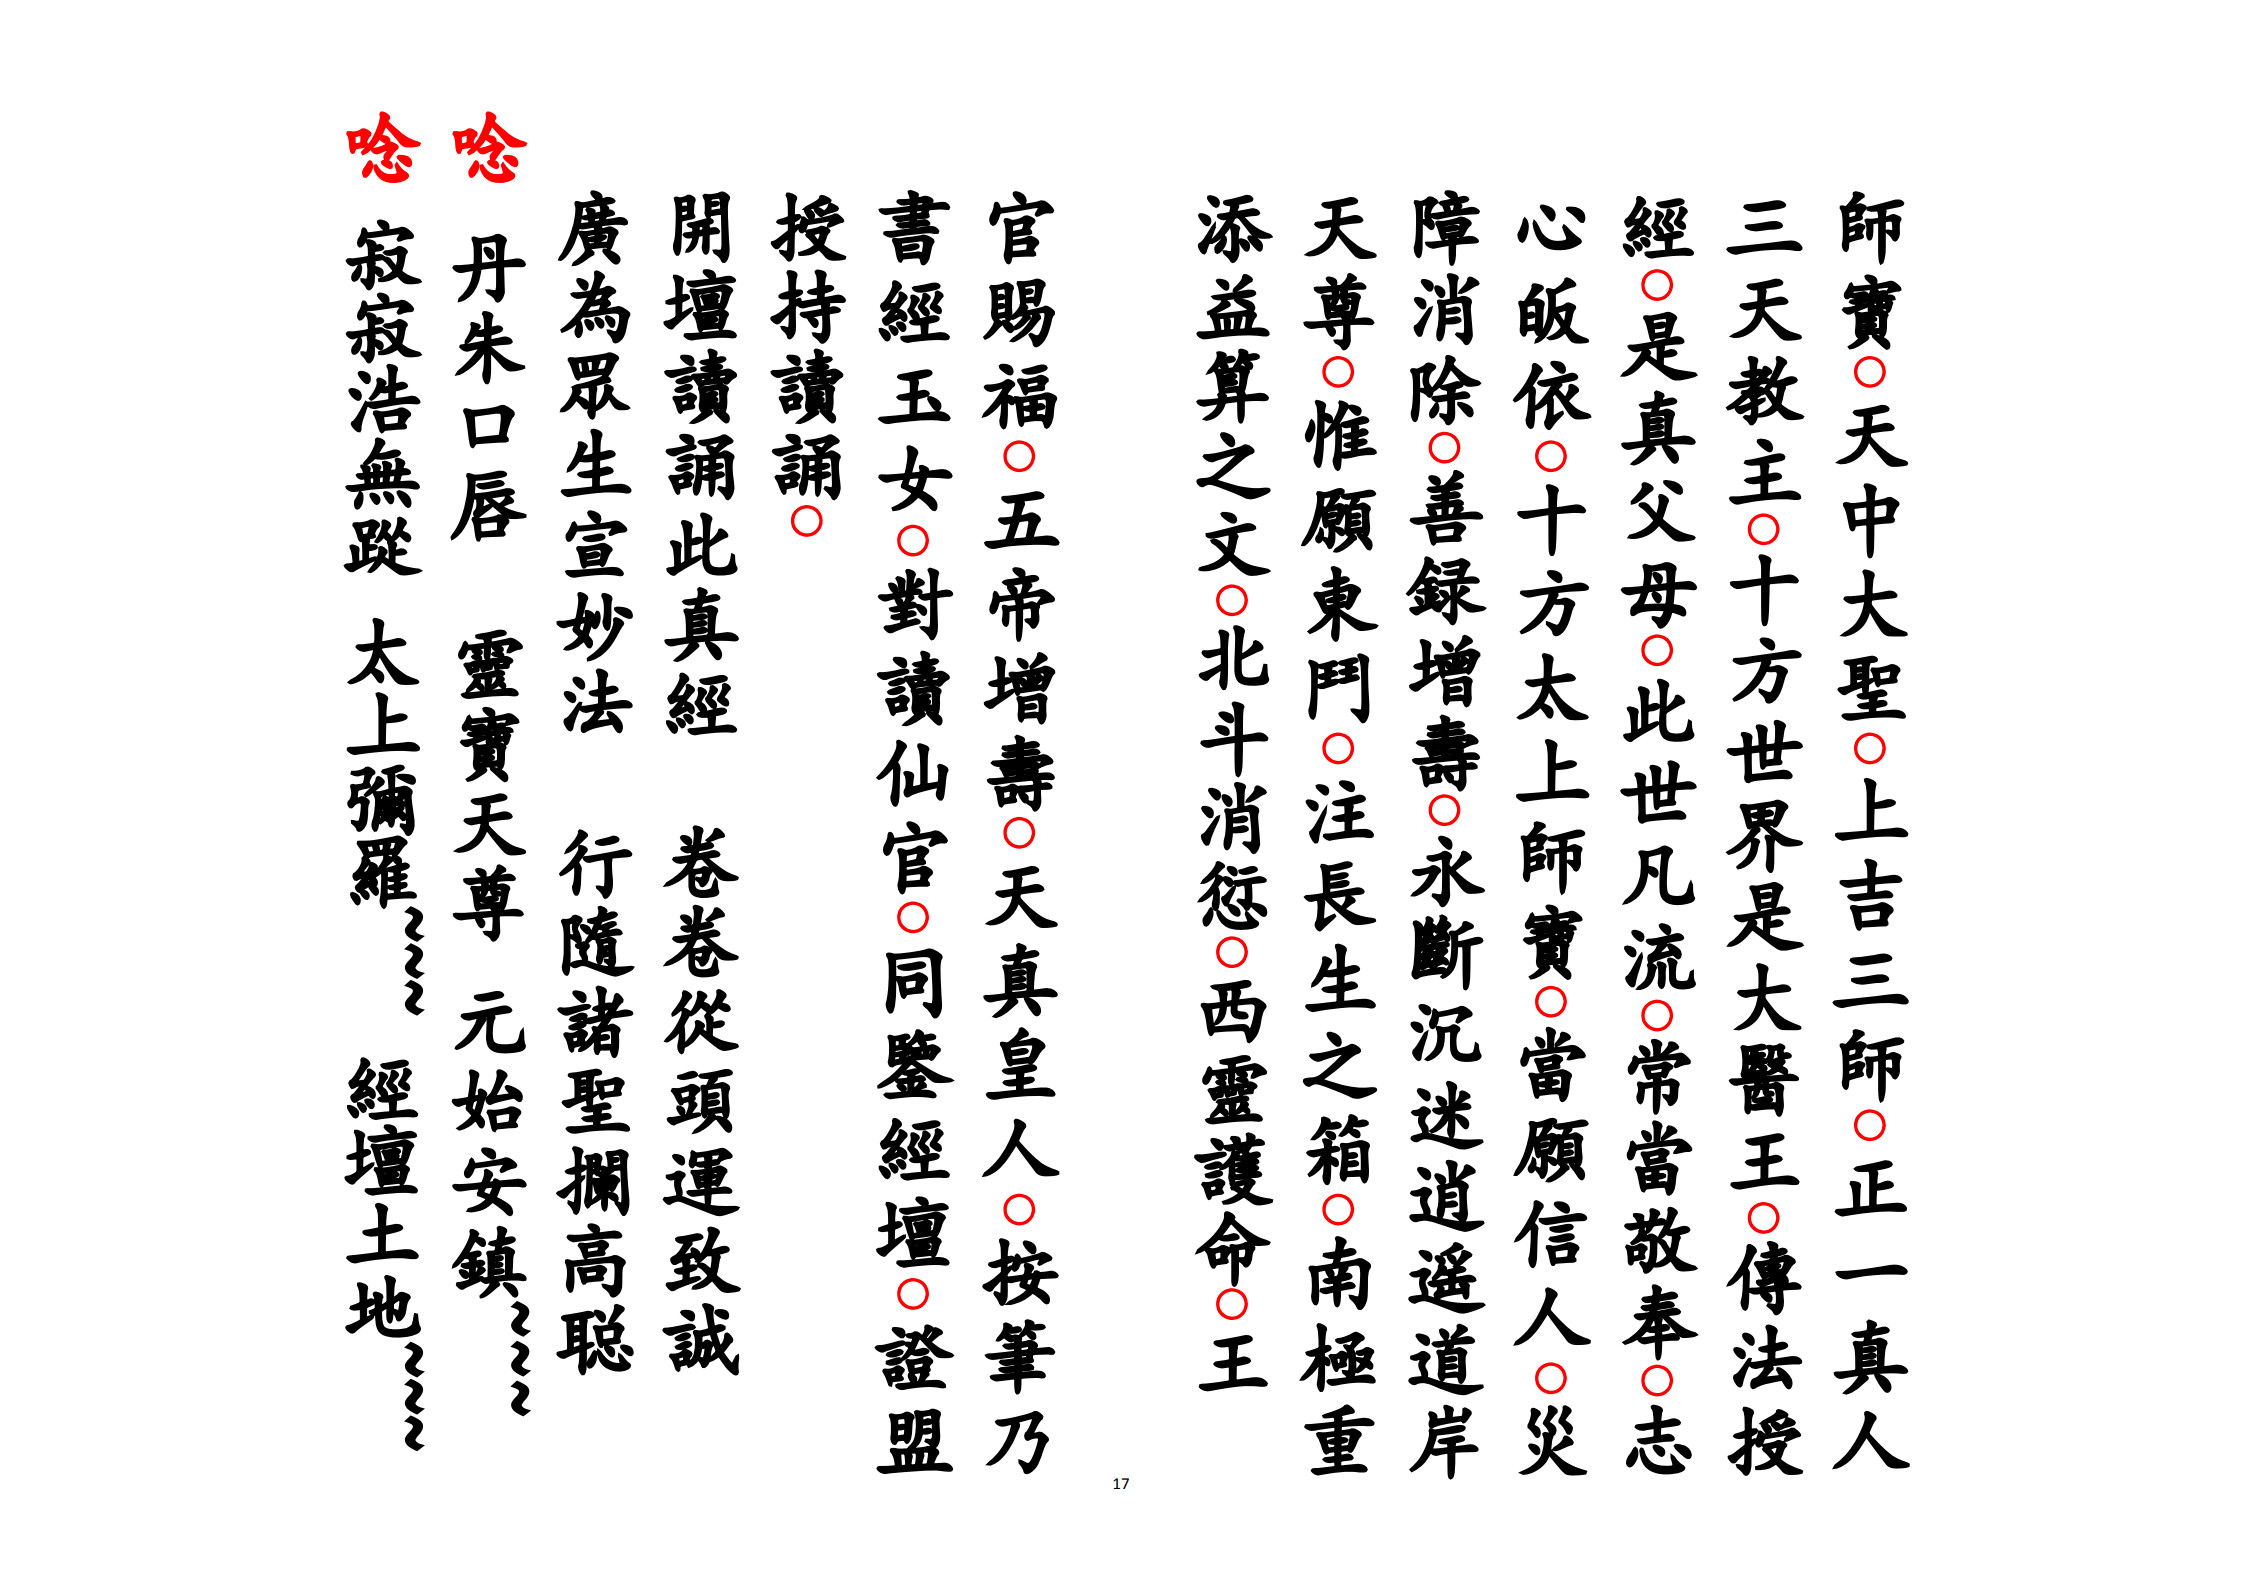 師寶○天中大聖○上吉三師○正一真人
三天教主○十方世界是大醫王○傳法授
經○是真父母○此世凡流○常當敬奉○志
心皈依○十方太上師寶○當願信人○災
障消除○善録增壽○永斷沉迷逍遥道岸
天尊○惟願東鬥○注長生之箱○南極重
添益算之文○北斗消愆○西靈護命○王
官賜福○五帝增壽○天真皇人○按筆乃
書經玉女○對讀仙官○同鑒經壇○證盟
授持讀誦○
開壇讀誦此真經 卷卷從頭運致誠
廣為眾生宣妙法 行隨諸聖擱高聪
唸 丹朱口唇 靈寶天尊 元始安鎮~~~
唸 寂寂浩無蹤 太上彌羅~~~ 經壇土地~~~
17